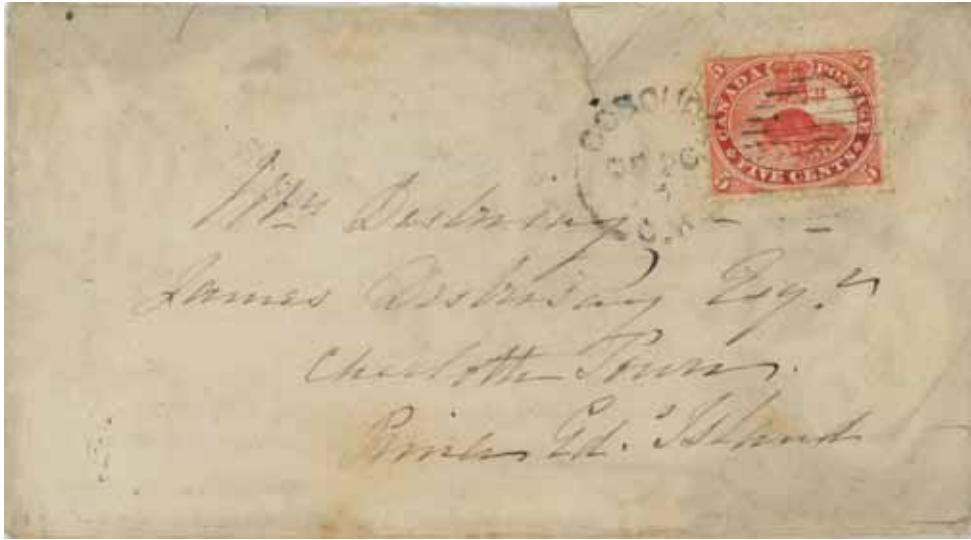 CANADA POSTAGE
FIVE CENTS
5 5 5 5
Desbrisay
James Desbrisay Esq.r
Charlotte Town.
Prince Ed.d Island